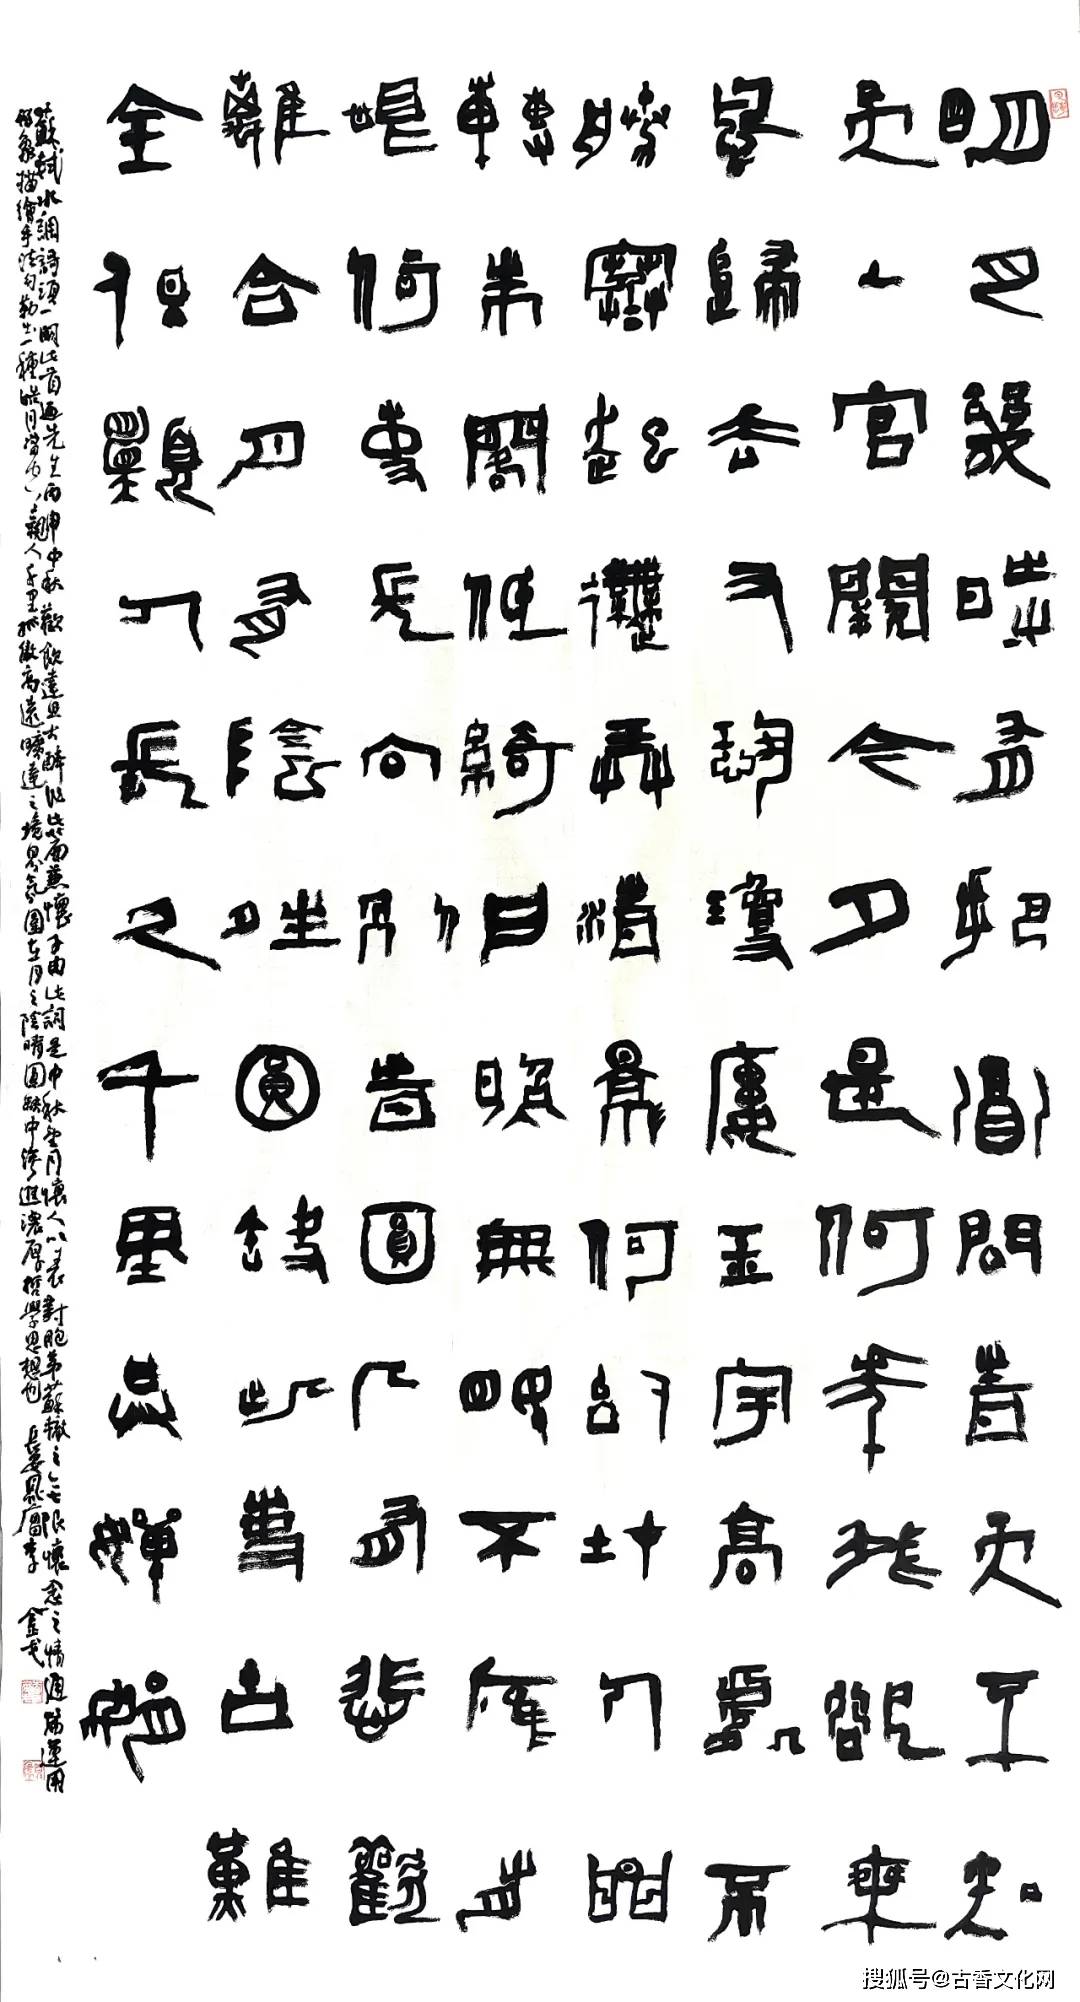 明月幾時有把酒問青天不知
天上宮闕今夕是何年我欲乘
風歸去又恐瓊樓玉宇高處不
勝寒起舞弄清影何似在人間
轉朱閣低綺戶照無眠不應有
恨何事長向別時圓人有悲歡
離合月有陰晴圓缺此事古難
全但願人長久千里共嬋娟
蘇軾水調歌頭一闋此首迺先生丙申中秋歡飲達旦大醉作此篇兼懷子由此詞是中秋望月懷人以表對胞弟蘇轍之無限懷念之情通篇運用
形象描繪手法勾勒出一種皓月當空親人千里孤傲高遠曠達之境界氛圍在月之陰晴圓缺中滲進濃厚哲學思想也 李金戈
搜狐号@古香文化网